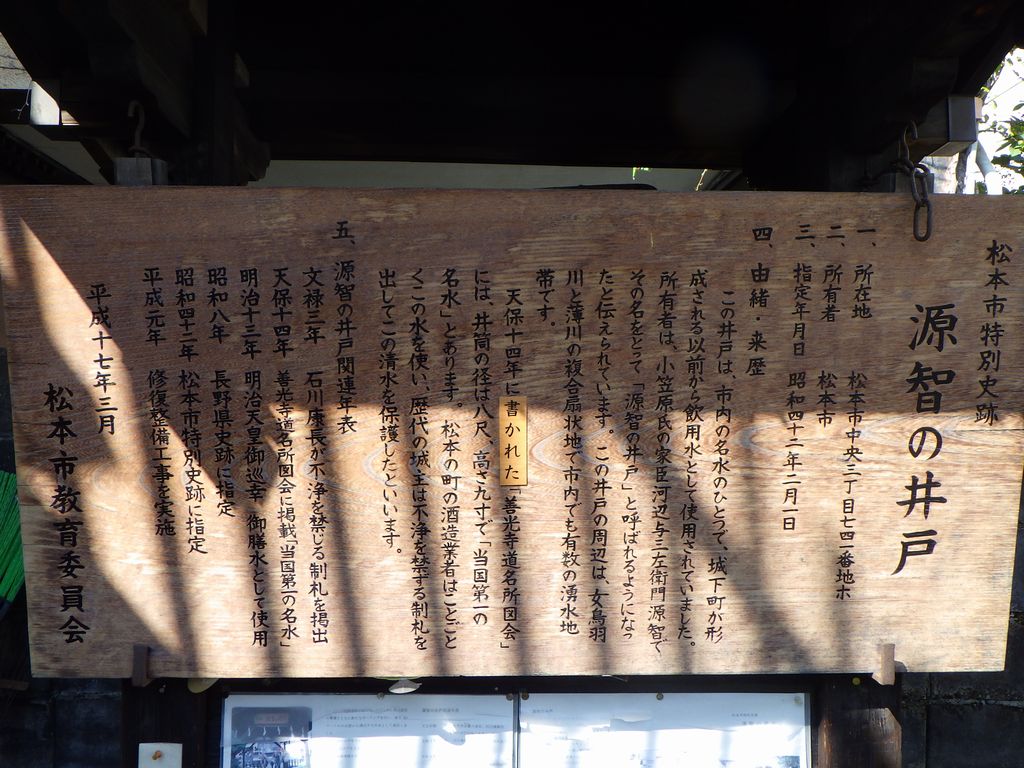 松本市特別史跡
源智の井戸
一、所在地 松本市中央三丁目七四一番地ホ
二、所有者 松本市
三、指定年月日 昭和四十二年二月一日
四、由緒・来歴
この井戸は、市内の名水のひとつで、城下町が形
成される以前から飲用水として使用されていました。
所有者は、小笠原氏の家臣河辺与三左衛門源智で
その名をとって「源智の井戸」と呼ばれるようになっ
たと伝えられています。この井戸の周辺は、女鳥羽
川と薄川の複合扇状地で市内でも有数の湧水地
帯です。
天保十四年に書かれた「善光寺道名所図会」
には、井筒の径は八尺、高さ九寸で「当国第一の
名水」とあります。松本の町の酒造業者はことごと
くこの水を使い、歴代の城主は不浄を禁ずる制札を
出してこの清水を保護したといいます。
五、源智の井戸関連年表
文禄三年 石川康長が不浄を禁じる制札を掲出
天保十四年 善光寺道名所図会に掲載「当国第一の名水」
明治十三年 明治天皇御巡幸 御膳水として使用
昭和八年 長野県史跡に指定
昭和四十二年 松本市特別史跡に指定
平成元年 修復整備工事を実施
平成十七年三月
松本市教育委員会